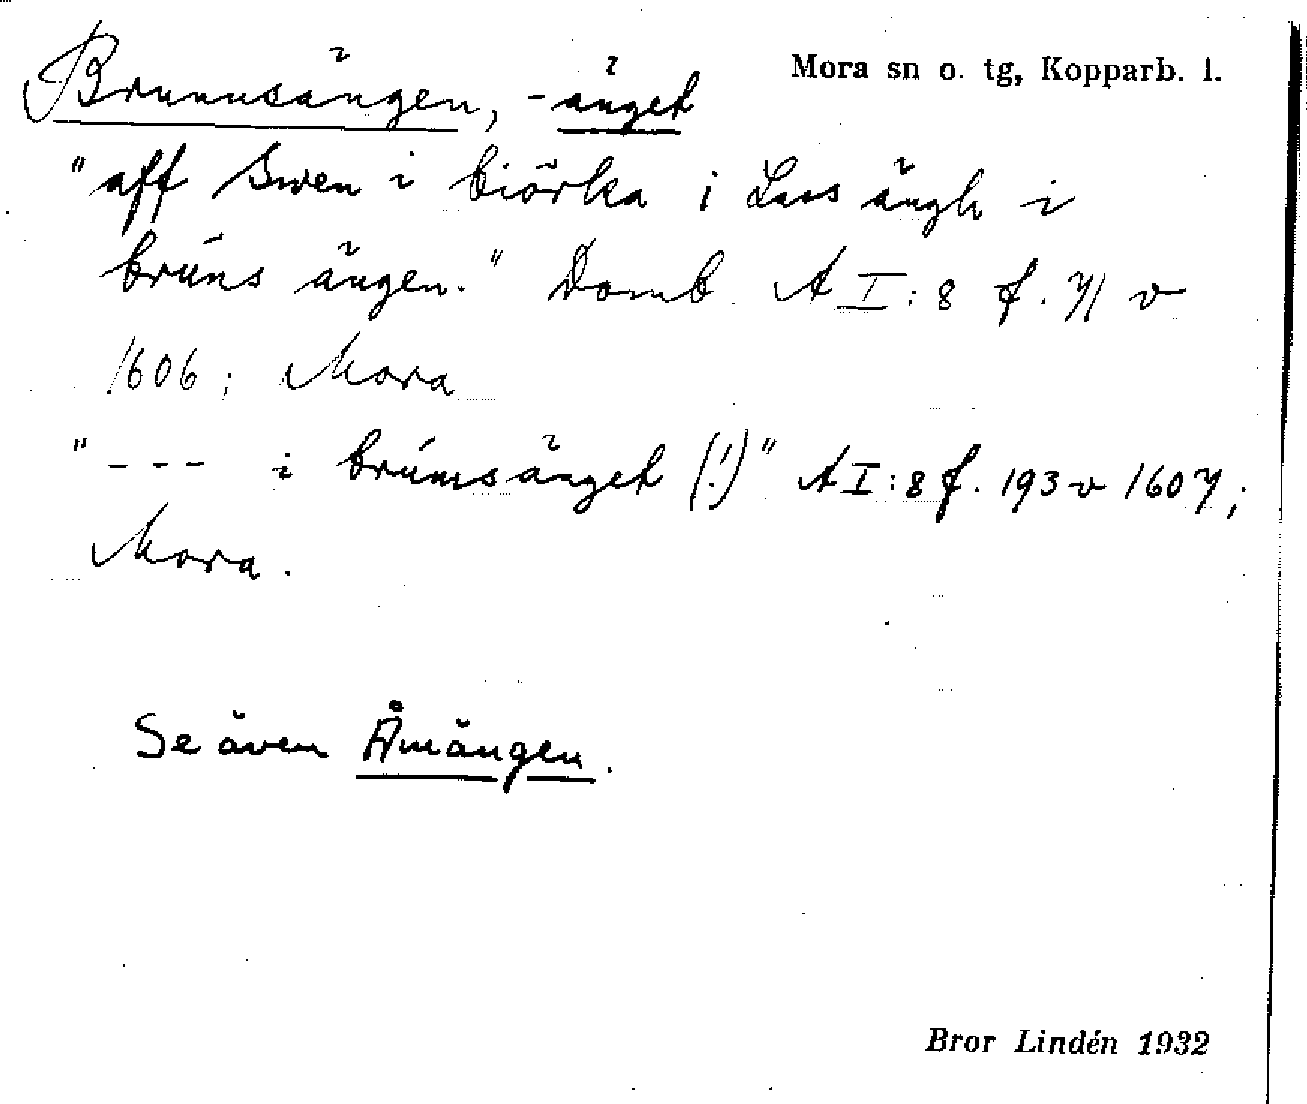 Mora sn o. tg, Kopparb. l.
Brunnsängen, -änget
"aff Swen i biörka i Lass ängh i
brúns ängen." Domb. A I:8 f. 71 v
1606; Mora
"--- i brúmsänget (!)" A I:8 f. 193 v 1607;
Mora.
Se även Åmängen.
Bror Lindén 1932